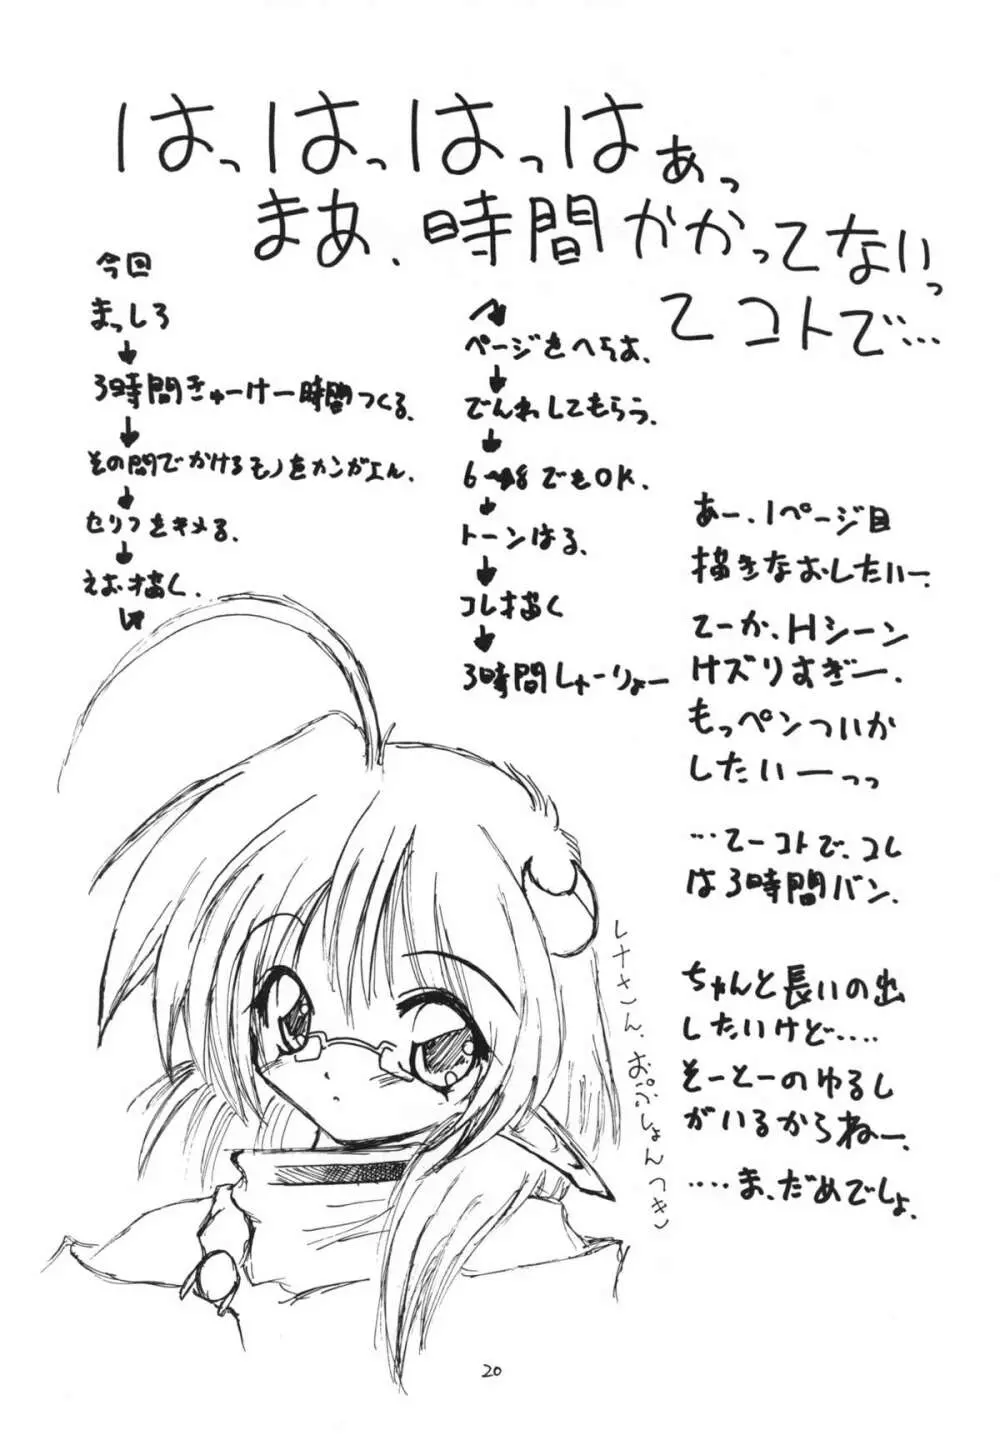 はっはっはっはぁっ
まあ、時間かかってないっ
てコトで…
今回
まっしろ
↓
3時間きゅーけー時間つくる。
↓
その間でかけるモノをカンがえん。
↓
セリフをキメる。
↓
えお描く。
↓
ページをへらす。
↓
でんわしてもらう。
↓
でもOK.
↓
トーンはる。
↓
コレ描く
↓
3時間しゅーりょー
あー、1ページ目
描きなおしたいー。
てーか、Hシーン
けズりすぎー。
もっペンついか
したいーーっっ
…てーコトで、コレ
は3時間バン。
ちゃんと長いの出
したいけど‥‥
そーとーのゆるし
がいるからねー。
‥‥ま、だめでしょ。
レナさん、おぷしょんつき
20